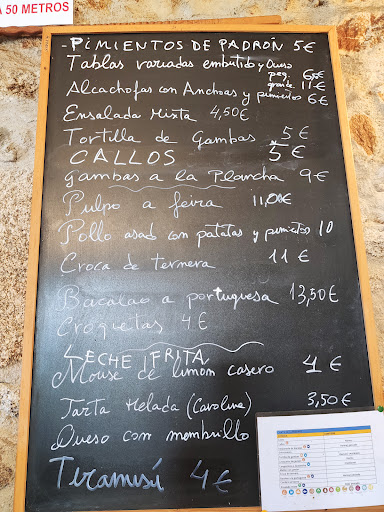 A 50 METROS
- PIMIENTOS DE PADRÓN 5€
Tablas variadas embutido y Queso
peq. 6€
grande 11€
Alcachofas con Anchoas y pimientos 6€
Ensalada Mixta 4,50€
Tortilla de Gambas 5€
CALLOS 5€
Gambas a la Plancha 9€
Pulpo a feira 11,00€
Pollo asado con patatas y pimientos 10
Croca de ternera 11€
Bacalao a portuguesa 13,50€
Croquetas 4€
LECHE FRITA
Mouse de limom casero 4€
Tarta Helada (Carolina) 3,50€
Queso com membrillo
Tiramisú 4€